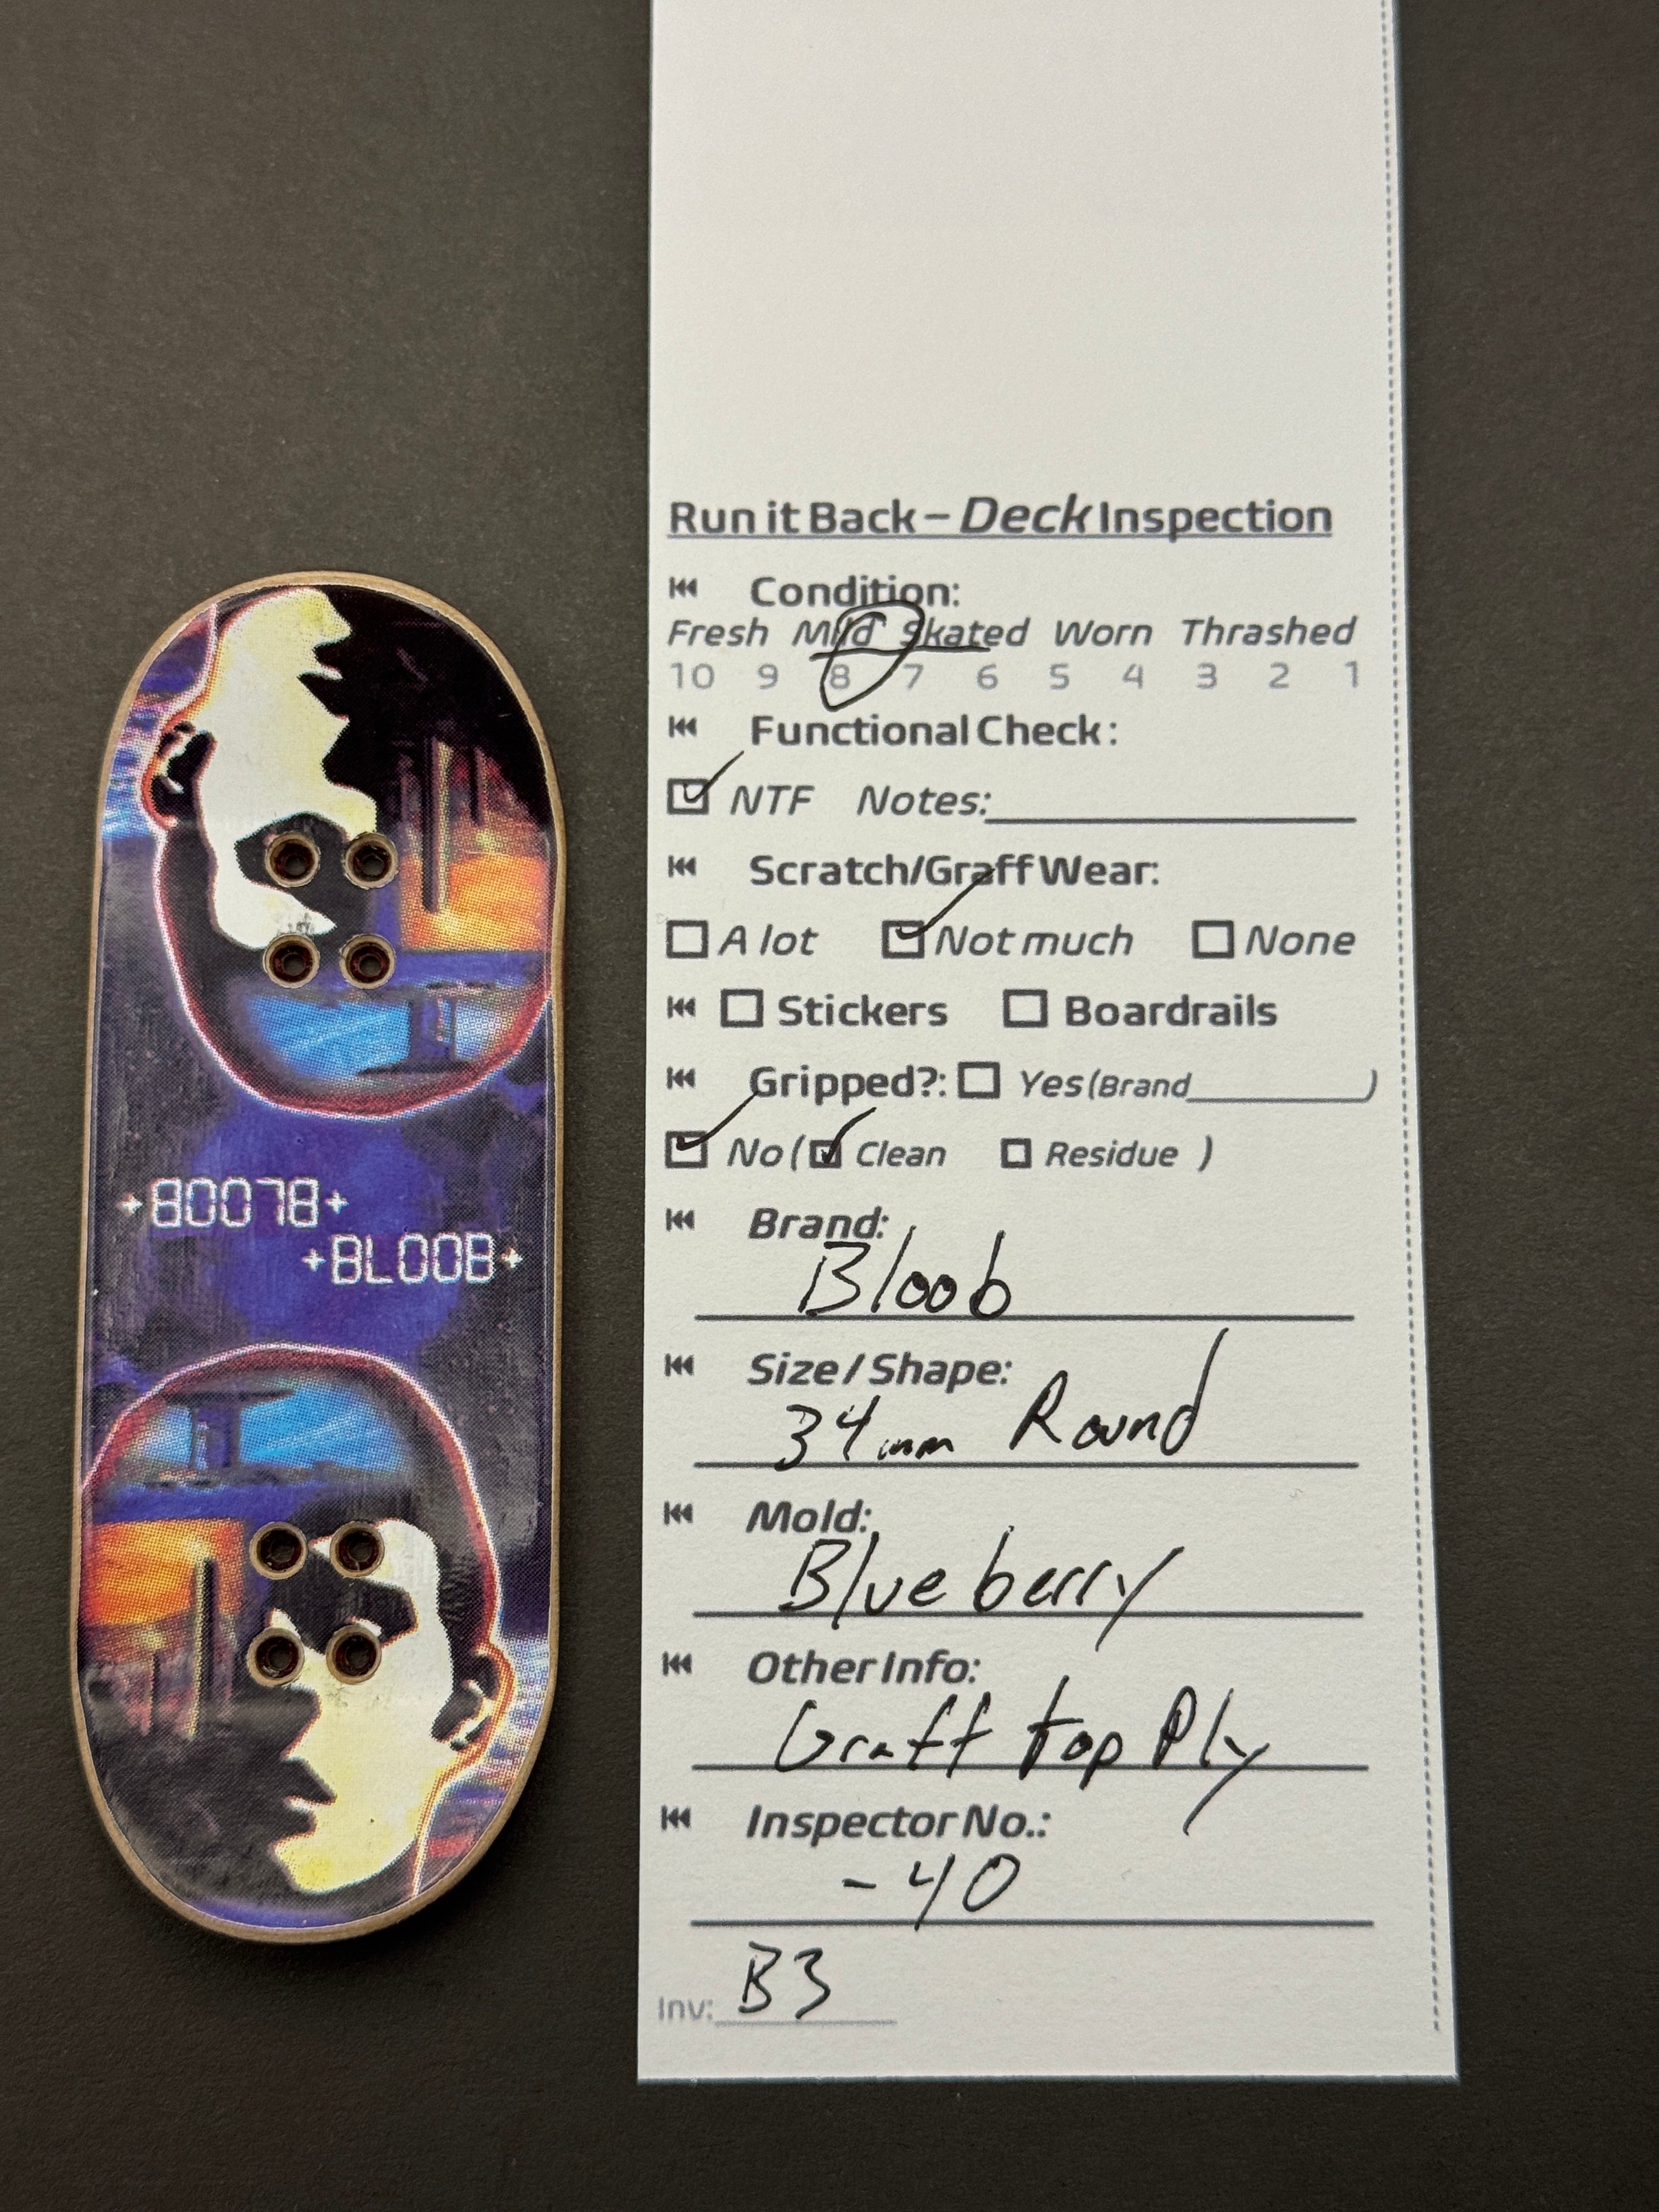 Run it Back – Deck Inspection
Condition:
Fresh Mild Skated Worn Thrashed
10 9 8 7 6 5 4 3 2 1
Functional Check:
NTF Notes:
Scratch/Graff Wear:
A lot Not much None
Stickers Boardrails
Gripped?: Yes (Brand )
No ( Clean Residue )
Brand:
Bloob
Size / Shape:
34mm Round
Mold:
Blueberry
Other Info:
Graff top Ply
Inspector No.:
-40
Inv: B3
+80078+
+BLOOB+